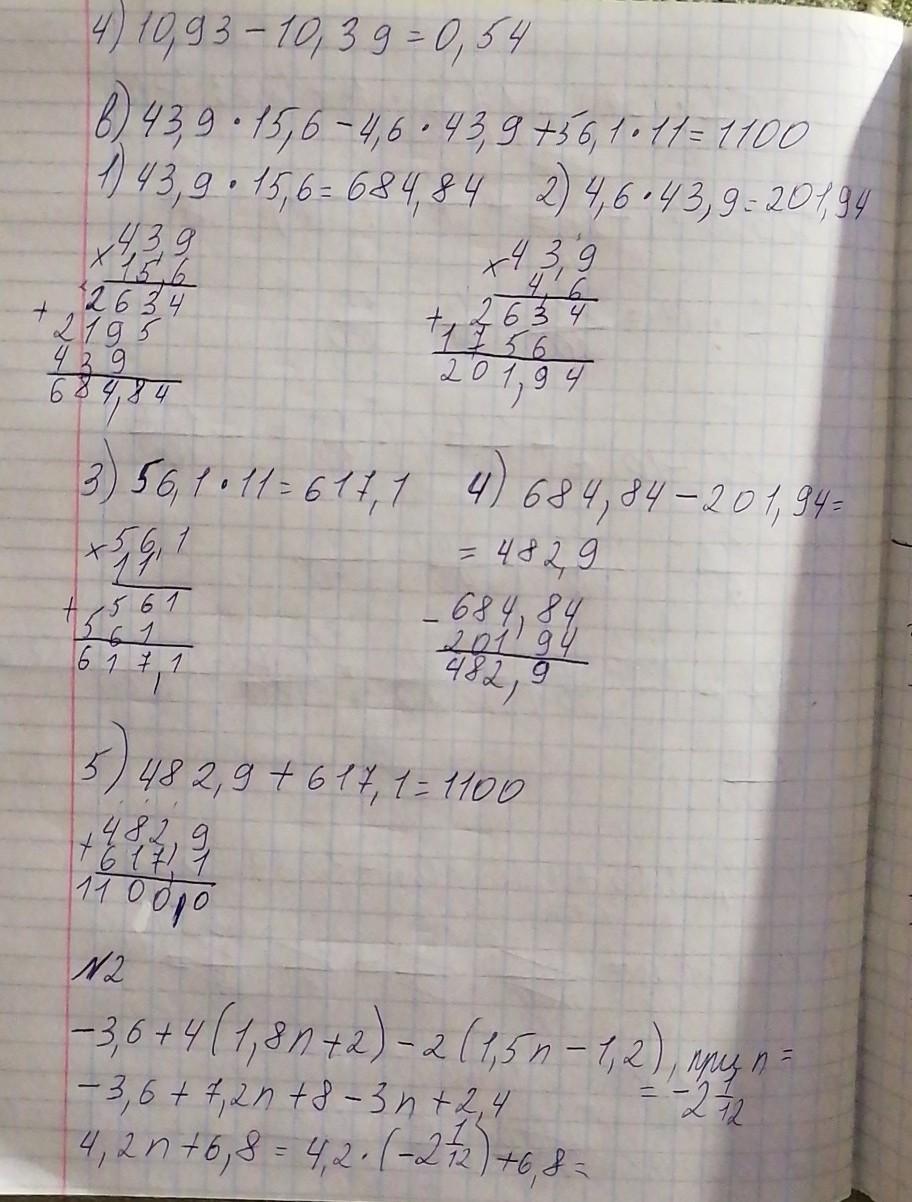 4) 10,93 - 10,39 = 0,54
в) 43,9 · 15,6 - 4,6 · 43,9 + 56,1 · 11 = 1100
1) 43,9 · 15,6 = 684,84 2) 4,6 · 43,9 = 201,94
× 43,9
15,6
2634
+ 2195
439
684,84
× 43,9
4,6
+ 2634
1756
201,94
3) 56,1 · 11 = 617,1 4) 684,84 - 201,94 =
= 482,9
× 56,1
11
+ 561
561
617,1
- 684,84
201,94
482,9
5) 482,9 + 617,1 = 1100
+ 482,9
617,1
1100,0
N2
-3,6 + 4(1,8n + 2) - 2(1,5n - 1,2), при n =
= -2 1/12
-3,6 + 7,2n + 8 - 3n + 2,4
4,2n + 6,8 = 4,2 · (-2 1/12) + 6,8 =